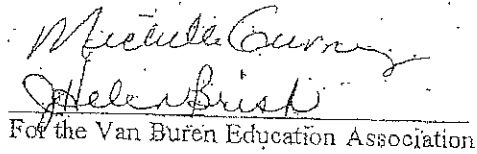 Michelle
J Helen Brish
For the Van Buren Education Association